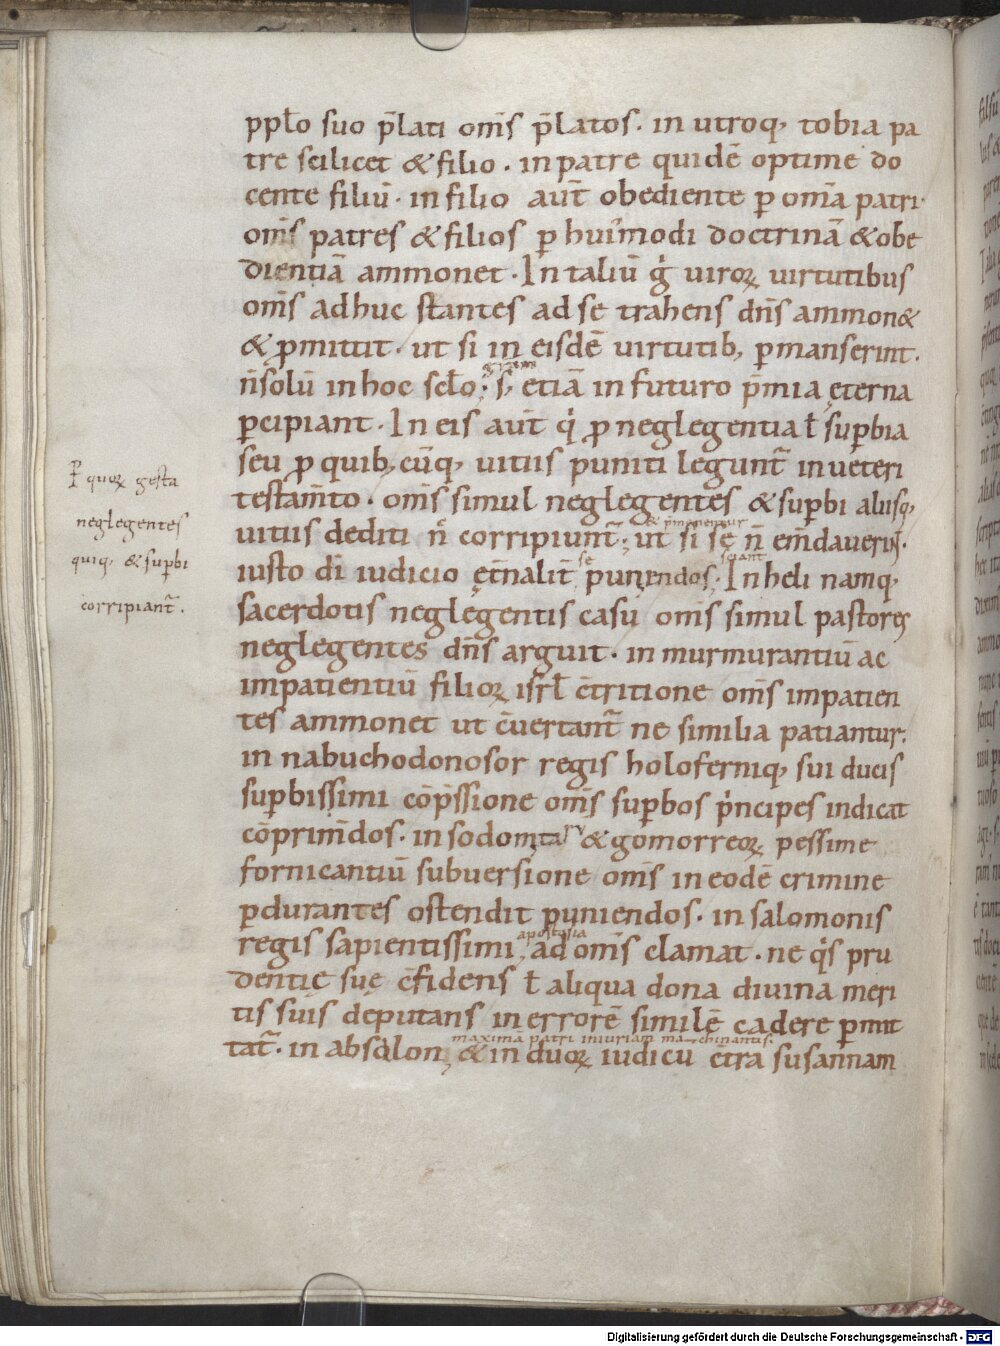 pplo suo p̄lati om̄s p̄latos. in utroq, tobia pa
tre scilicet & filio. in patre quidē optime do
cente filiū. in filio aūt obediente p om̄a patri.
om̄s patres & filios p hui'modi doctrinā & obe
dientiā ammonet. In taliū g̊ uiroꝝ uirtutibus
om̄s adhuc stantes ad se trahens dn̄s ammon&
& ꝓmittit. ut si in eisdē uirtutib; ꝑmanserint.
n̄ solū in hoc sclo; s; etiā in futuro p̄mia ęterna
ꝑcipiant. In eis aūt q̇ ꝓ neglegentia ł suꝑbia
seu ꝓ quib; cūq, uitiis puniti legunt̄ in ueteri
testam̄to. om̄s simul neglegentes & suꝑbi aliisq,
uitiis dediti n̊ corripiunt̄; ut si se n̄ em̄dauerint.
& p̄monentur
iusto di iudicio et̄nalit̄ puniendos. In heli namq,
se sciant
sacerdotis neglegentis casu om̄s simul pastores
neglegentes dn̄s arguit. in murmurantiū ac
impatientiū filioꝝ isrł c̄tritione om̄s impatien
tes ammonet ut c̄uertant̄ ne similia patiantur.
in nabuchodonosor regis holoferniq, sui ducis
suꝑbissimi cōp̄ssione om̄s suꝑbos pincipes indicat
cōprim̄dos. in sodomitarū & gomorreoꝝ pessime
fornicantiū subuersione om̄s in eodē crimine
ꝑdurantes ostendit puniendos. in salomonis
regis sapientissimi apostasia ad om̄s clamat. ne q̇s pru
dentię suę c̄fidens ł aliqua dona diuina meri
tis suis deputans in errorē similē cadere ꝑmit
tat̄. in absalon maximā patri iniuriam machinantis. & in duoꝝ iudicū c̄tra susannam
P quoꝝ gesta
neglegentes
quiq, & suꝑbi
corripiant̄.
Digitalisierung gefördert durch die Deutsche Forschungsgemeinschaft - DFG